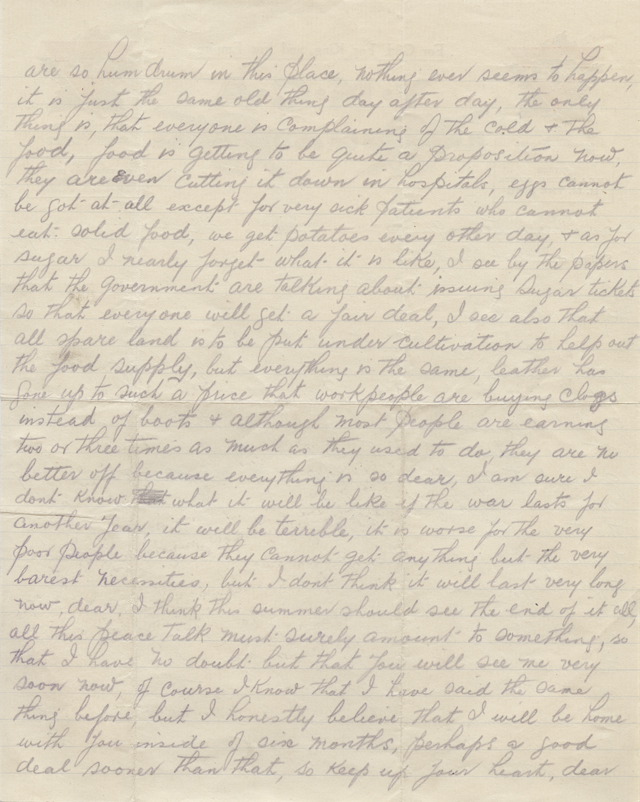 are so hum drum in this place, nothing ever seems to happen,
it is just the same old thing day after day, the only
thing is, that everyone is complaining of the cold & the
food, food is getting to be quite a proposition now,
they are even cutting it down in hospitals, eggs cannot
be got at all except for very sick patients who cannot
eat solid food, we get potatoes every other day, & as for
sugar I nearly forget what it is like, I see by the papers
that the government are talking about issuing sugar tickets
so that everyone will get a fair deal, I see also that
all spare land is to be put under cultivation to help out
the food supply, but everything is the same, leather has
gone up to such a price that workpeople are buying clogs
instead of boots & although most people are earning
two or three times as much as they used to do, they are no
better off because everything is so dear, I am sure I
dont know what it will be like if the war lasts for
another year, it will be terrible, it is worse for the very
poor people because they cannot get anything but the very
barest necessities, but I dont think it will last very long
now, dear, I think this summer should see the end of it all,
all this peace talk must surely amount to something, so
that I have no doubt but that you will see me very
soon now, of course I know that I have said the same
thing before, but I honestly believe that I will be home
with you inside of six months, perhaps a good
deal sooner than that, so keep up your heart, dear